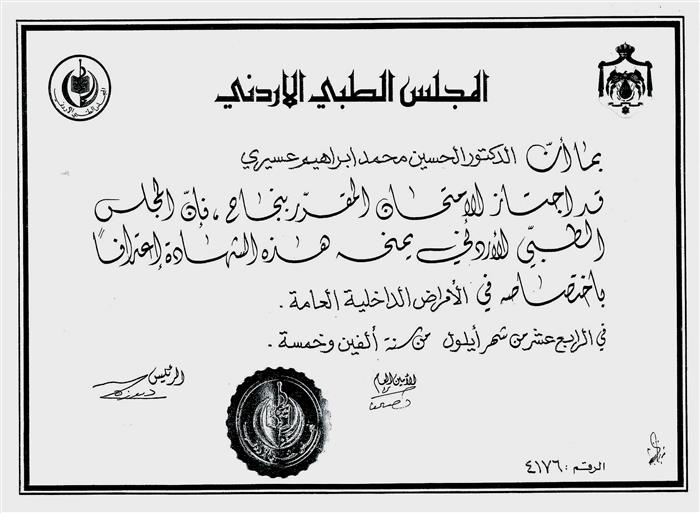 المجلس الطبي الاردني
بما أنّ الدكتور الحسين محمد ابراهيم عسيري
قد اجتاز الامتحان المقرّر بنجاح ، فإنّ المجلس
الطبّي الأردني يمنحه هذه الشهادة إعترافاً
باختصاصه في الأمراض الداخلية العامة .
في الرابع عشر من شهر أيلول من سنة ألفين وخمسة .
الأمين العام
الرئيس
الرقم : ٤١٧٦